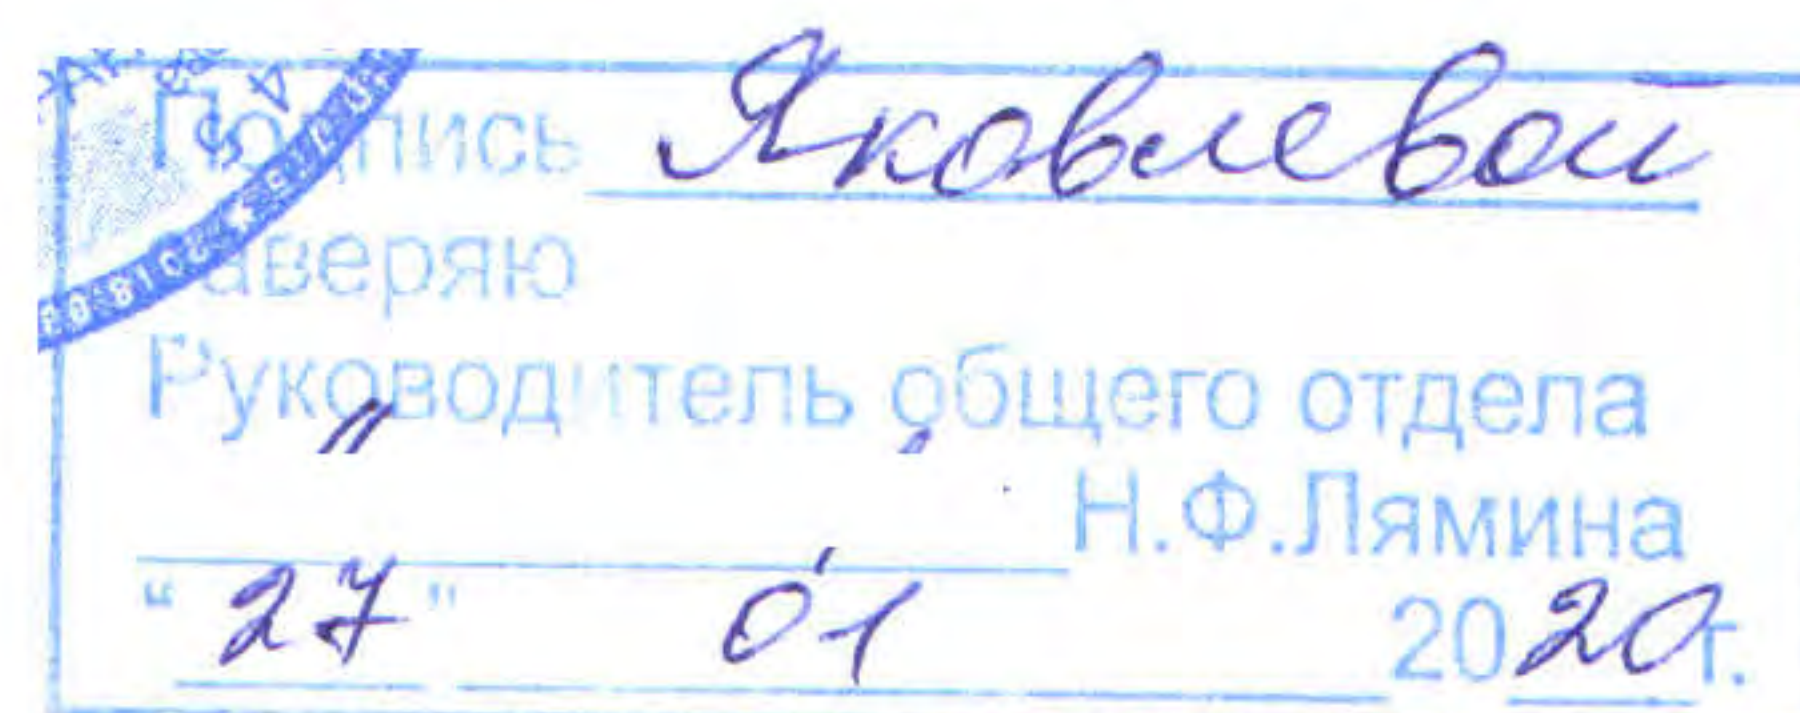 Подпись Яковлевой
заверяю
Руководитель общего отдела
Н.Ф.Лямина
“ 27 ” 01 2020г.